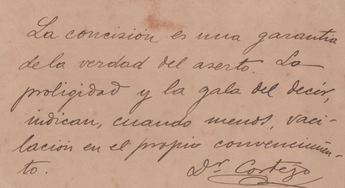 La concision es una garantia
de la verdad del aserto. La
proligidad y la gala del decir,
indican, cuando menos, vaci-
lación en el propio convencimien-
to.
Dr. Cortezo